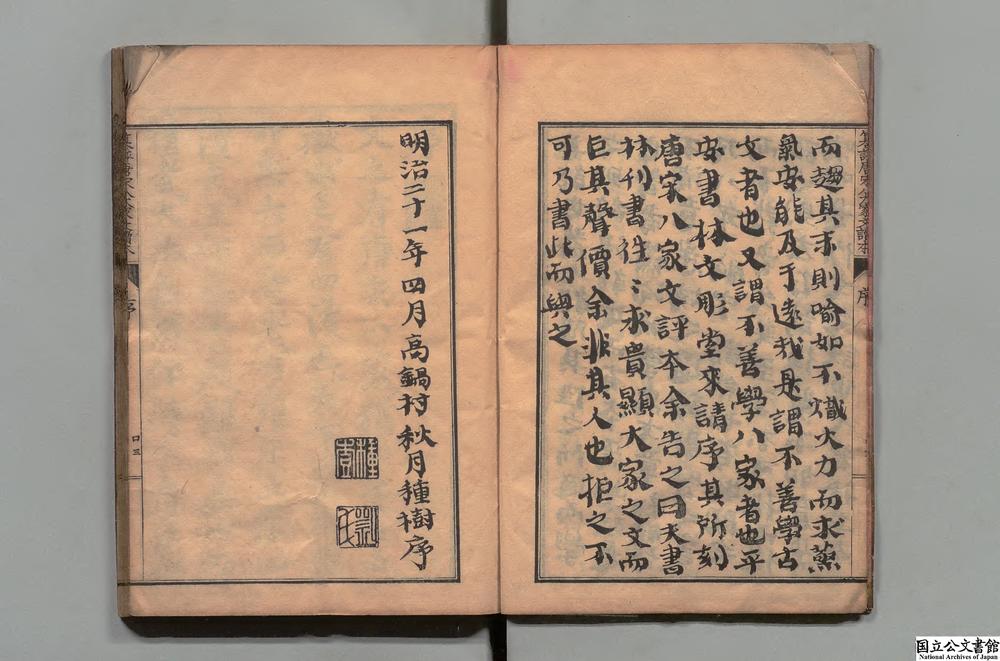 而趨其末則喻如不熾火力而求蒸
氣安能及于遠哉是謂不善學古
文者也又謂不善學八家者也平
安書林文彫堂來請序其所刻
唐宋八家文評本余告之曰夫書
林刊書往〻求貴顯大家之文而
巨其聲價余非其人也拒之不
可乃書此而與之
明治二十一年四月高鍋村秋月種樹序
序
序
口三
国立公文書館
National Archives of Japan